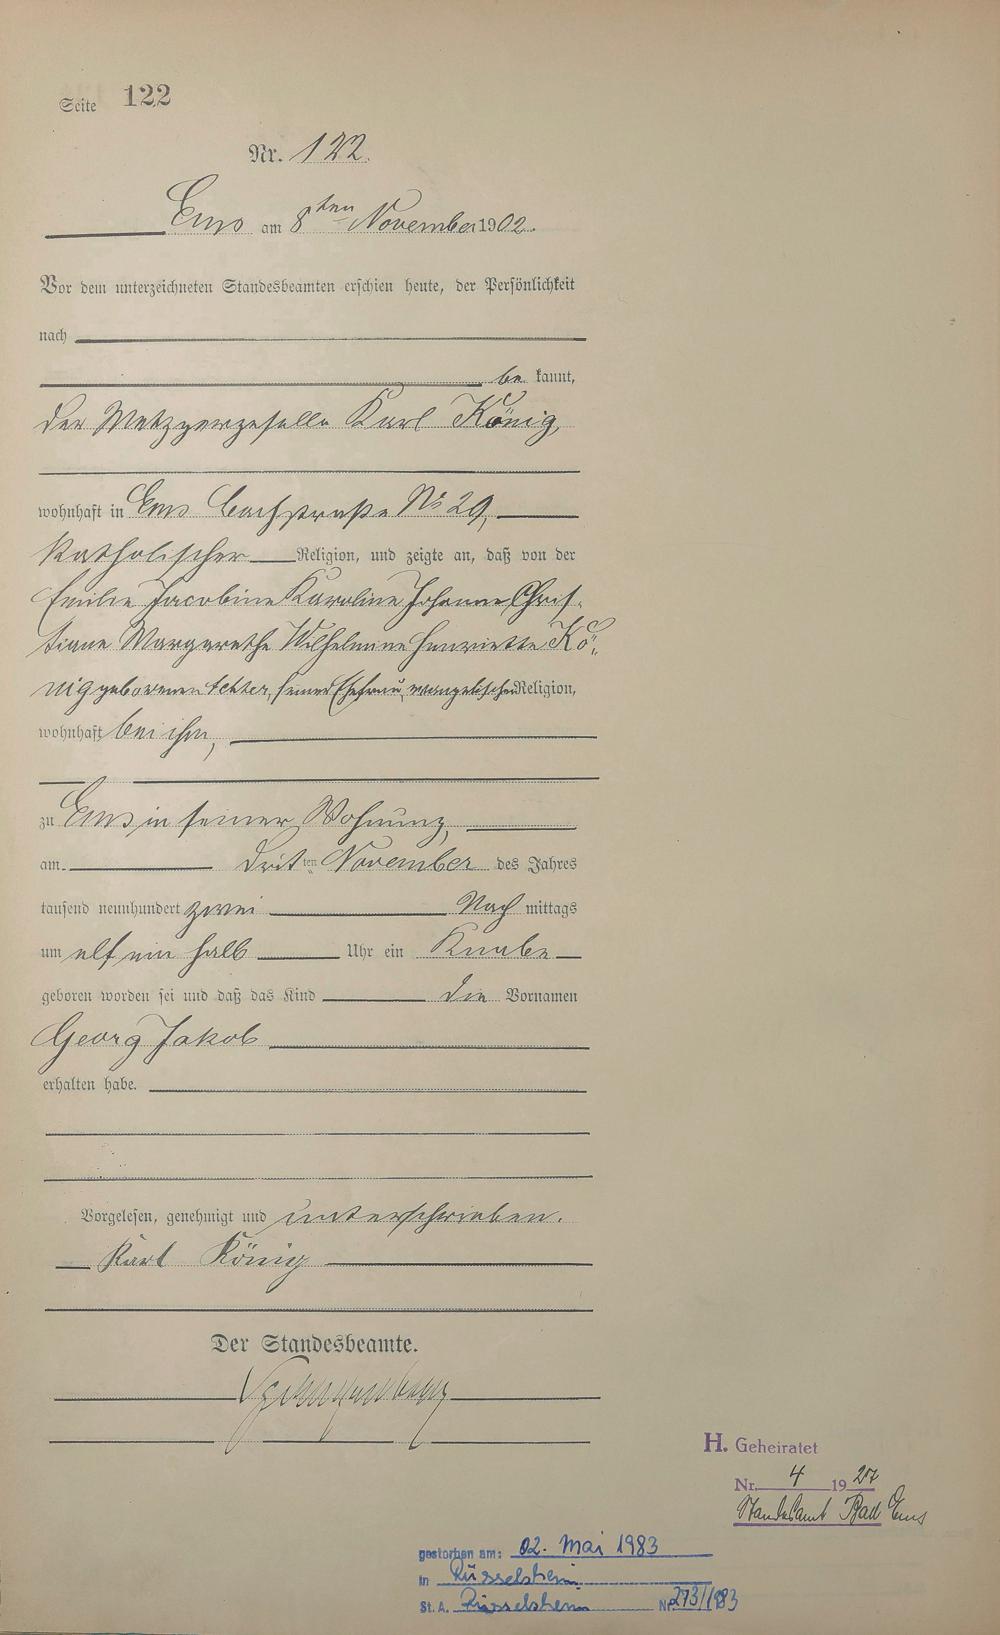 Seite 122
Nr. 122.
Ems am 8ten November 1902.
Vor dem unterzeichneten Standesbeamten erschien heute, der Persönlichkeit
nach
be kannt,
der Metzgergeselle Karl König,
wohnhaft in Ems Bachstraße No 29,
katholischer Religion, und zeigte an, daß von der
Emilie Jacobine Karoline Johanna Chris-
tiane Margarethe Wilhelmine Henriette Kö-
nig geborenen seiner Ehefrau, evangelischer Religion,
wohnhaft bei ihm,
zu Ems in seiner Wohnung,
am dritten November des Jahres
tausend neunhundert zwei Nach mittags
um elf ein halb Uhr ein Knabe
geboren worden sei und daß das Kind die Vornamen
Georg Jakob
erhalten habe.
Vorgelesen, genehmigt und unterschrieben.
Karl König
Der Standesbeamte.
H. Geheiratet
Nr. 4 1927
Standesamt Bad Ems
gestorben am: 02. Mai 1983
in Rüsselsheim
St.A. Rüsselsheim Nr. 273/1983